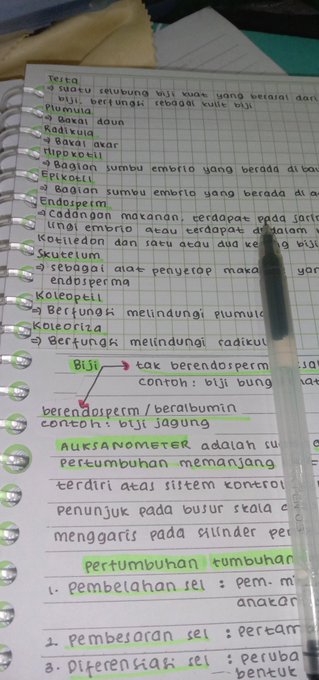 Testa
→ suatu selubung biji kuat yang berasal dari
biji. berfungsi sebagai kulit biji
Plumula
→ Bakal daun
Radikula
→ Bakal akar
Hipokotil
→ Bagian sumbu embrio yang berada di
Epikotil
→ Bagian sumbu embrio yang berada di
Endosperm
→ cadangan makanan, terdapat pada
ungi embrio atau terdapat
Kotiledon dan satu atau dua biji
Skutelum
→ sebagai alat penyerap
endosperma
Koleoptil
→ Berfungsi melindungi
Koleoriza
→ Berfungsi melindungi
Biji → tak berendosperm
contoh: biji
berendosperm / beralbumin
contoh: biji jagung
AUKSANOMETER adalah
pertumbuhan memanjang
terdiri atas sistem kontrol
penunjuk pada busur skala
menggaris pada silinder
pertumbuhan tumbuhan
1. pembelahan sel : pem.
2. pembesaran sel :
3. Diferensiasi sel :
bentuk